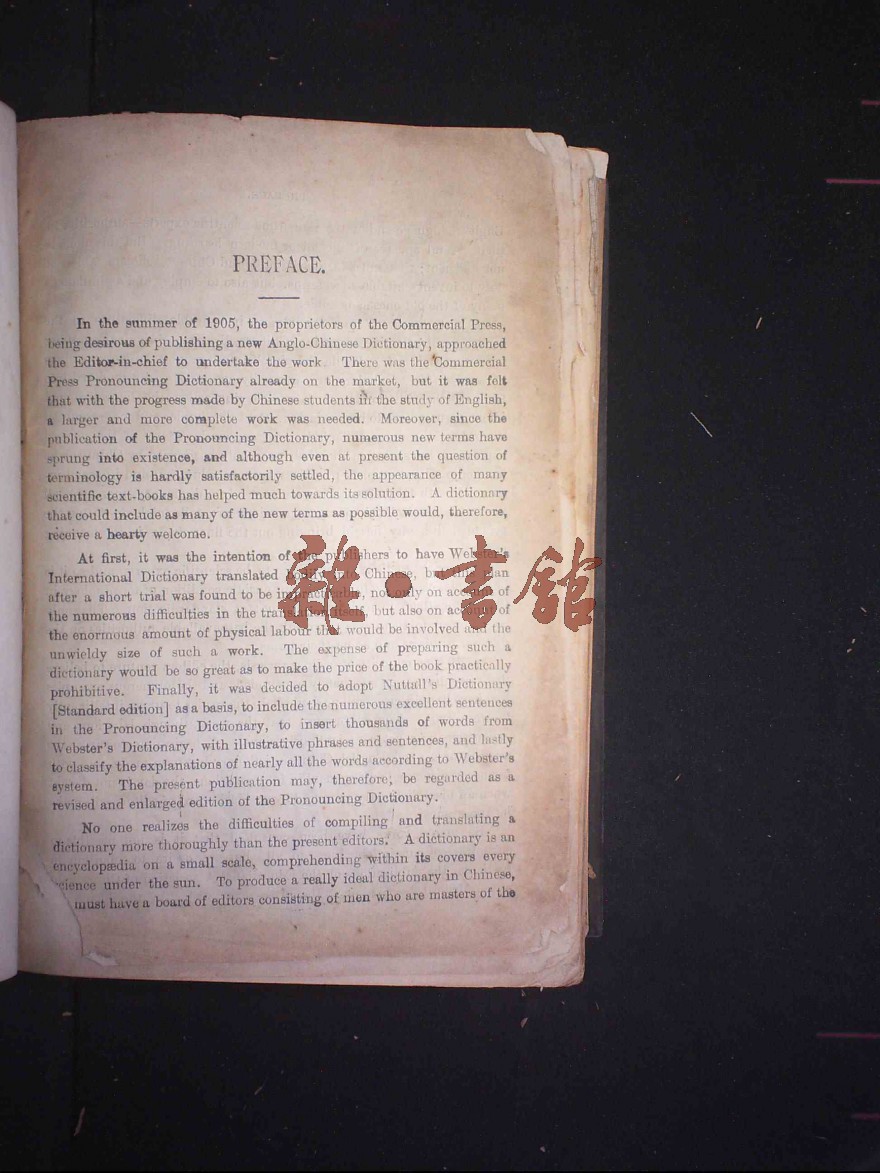 PREFACE.
In the summer of 1905, the proprietors of the Commercial Press,
being desirous of publishing a new Anglo-Chinese Dictionary, approached
the Editor-in-chief to undertake the work. There was the Commercial
Press Pronouncing Dictionary already on the market, but it was felt
that with the progress made by Chinese students in the study of English,
a larger and more complete work was needed. Moreover, since the
publication of the Pronouncing Dictionary, numerous new terms have
sprung into existence, and although even at present the question of
terminology is hardly satisfactorily settled, the appearance of many
scientific text-books has helped much towards its solution. A dictionary
that could include as many of the new terms as possible would, therefore,
receive a hearty welcome.
At first, it was the intention of the publishers to have Webster's
International Dictionary translated bodily into Chinese, but this plan
after a short trial was found to be impracticable, not only on account of
the numerous difficulties in the translation itself, but also on account of
the enormous amount of physical labour that would be involved and the
unwieldy size of such a work. The expense of preparing such a
dictionary would be so great as to make the price of the book practically
prohibitive. Finally, it was decided to adopt Nuttall's Dictionary
[Standard edition] as a basis, to include the numerous excellent sentences
in the Pronouncing Dictionary, to insert thousands of words from
Webster's Dictionary, with illustrative phrases and sentences, and lastly
to classify the explanations of nearly all the words according to Webster's
system. The present publication may, therefore, be regarded as a
revised and enlarged edition of the Pronouncing Dictionary.
No one realizes the difficulties of compiling and translating a
dictionary more thoroughly than the present editors. A dictionary is an
encyclopædia on a small scale, comprehending within its covers every
science under the sun. To produce a really ideal dictionary in Chinese,
must have a board of editors consisting of men who are masters of the
雜·書館